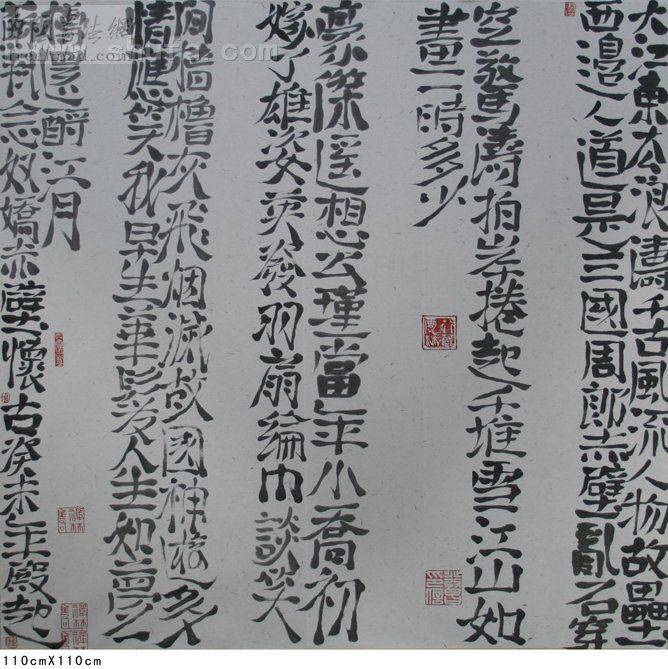 大江東去浪濤千古風流人物故壘
西邊人道是三國周郎赤壁亂石穿
空驚濤拍岸捲起千堆雪江山如
畫一時多少
豪傑遙想公瑾當年小喬初
嫁了雄姿英發羽扇綸巾談笑
間檣櫓灰飛烟滅故國神遊多
情應笑我早生華髮人生如夢一
還酹江月
念奴嬌赤壁懷古癸未
110cmX110cm